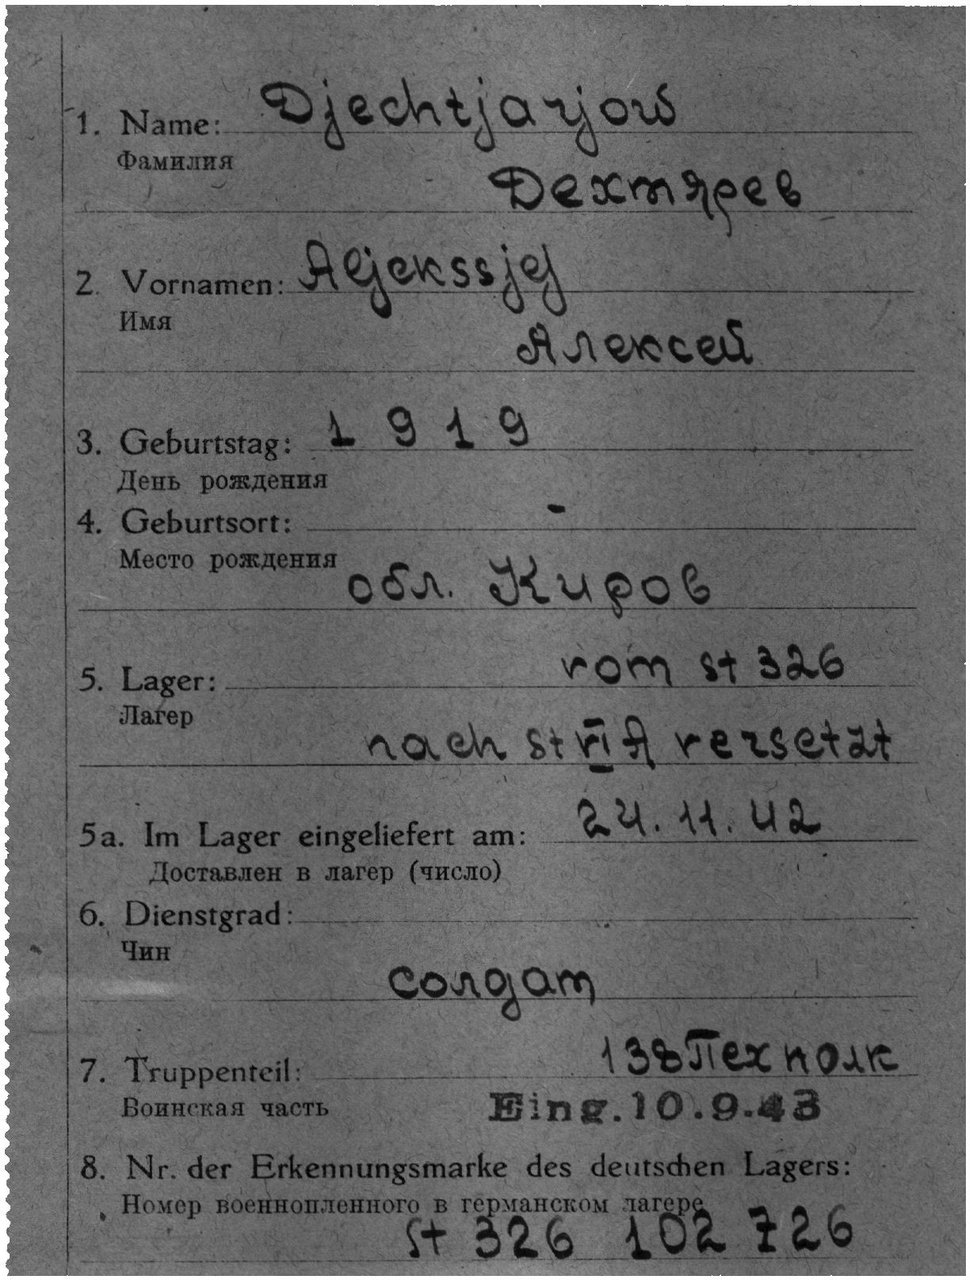 1. Name: Djechtjarjow
Фамилия
Дехтярев
2. Vornamen: Aljekssjej
Имя
Алексей
3. Geburtstag: 1919
День рождения
4. Geburtsort: -
Место рождения
обл. Киров
5. Lager: vom St 326
Лагер
nach St VI A versetzt
5a. Im Lager eingeliefert am: 24.11.42
Доставлен в лагер (число)
6. Dienstgrad:
Чин
солдат
7. Truppenteil: 138 Пех полк
Воинская часть
Eing. 10.9.43
8. Nr. der Erkennungsmarke des deutschen Lagers:
Номер военнопленного в германском лагере
St 326 102 726